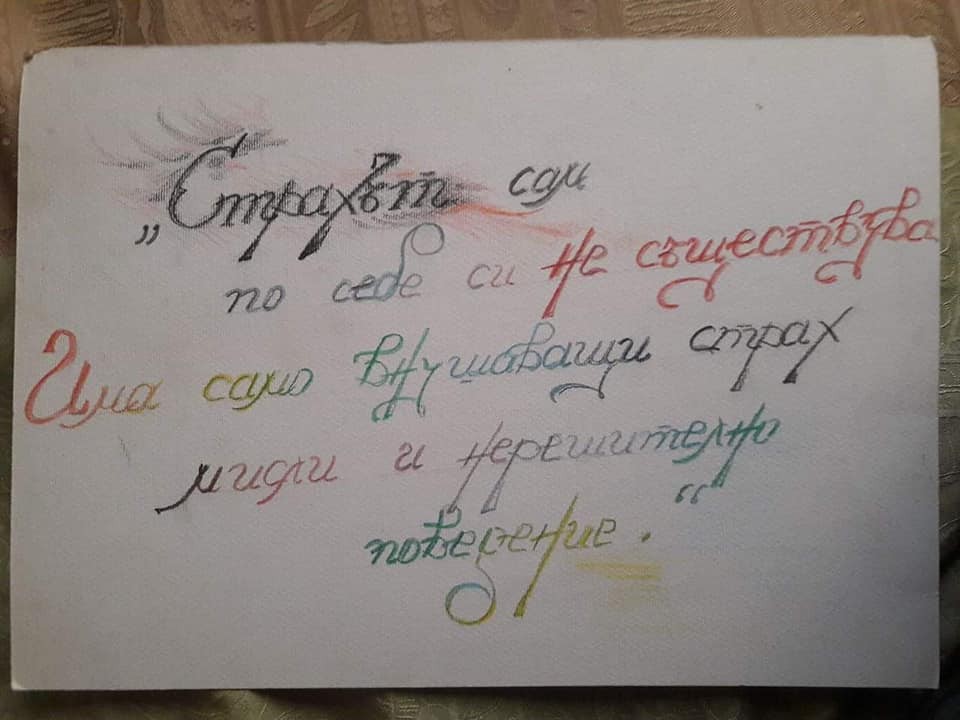 „Страхът сам
по себе си не съществува
Има само внушаващи страх
мисли и нерешително
поведение.“